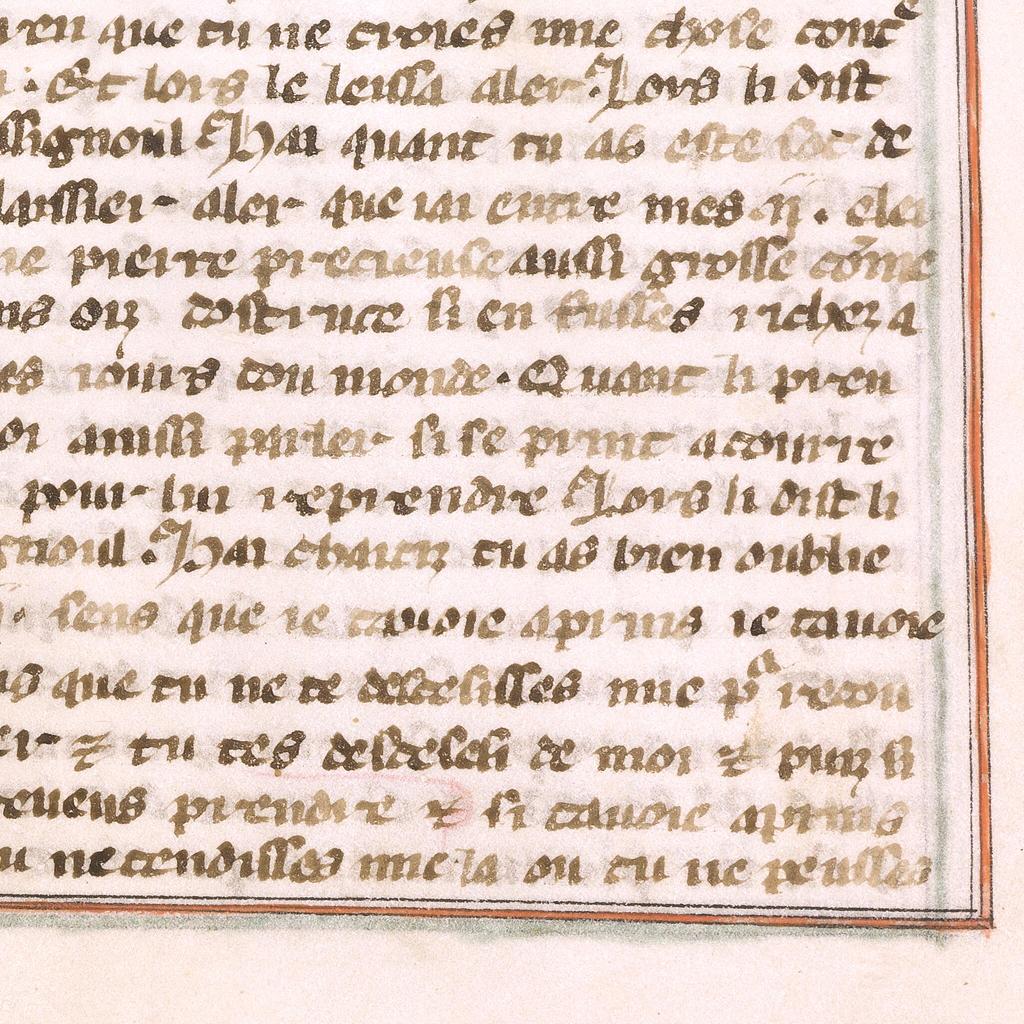 ren que tu ne croies mie chose cont^e
. Et lors le leissa aler. Lors li dist
ssignoul Hai quant tu as este sot de
laissier aler que iai entre mes .ij. elei
ne pierre precieuse aussi grosse cõme
ns oiz dostruce si en fusses richez a
es iours dou monde. Quant li pren
oi ainssi parler si se prinst a courre
pour lui reprendre Lors li dist li
gnoul. Hai chaitiz tu as bien oublie
sens que ie tauoie aprins ie tauoie
ns que tu ne te desdesisses mie p^a recou
er ⁊ tu tes desdeseli de moi ⁊ puiz si
eueus prendre ⁊ si tauoie aprins
u ne tendisses mie la ou tu ne peusses